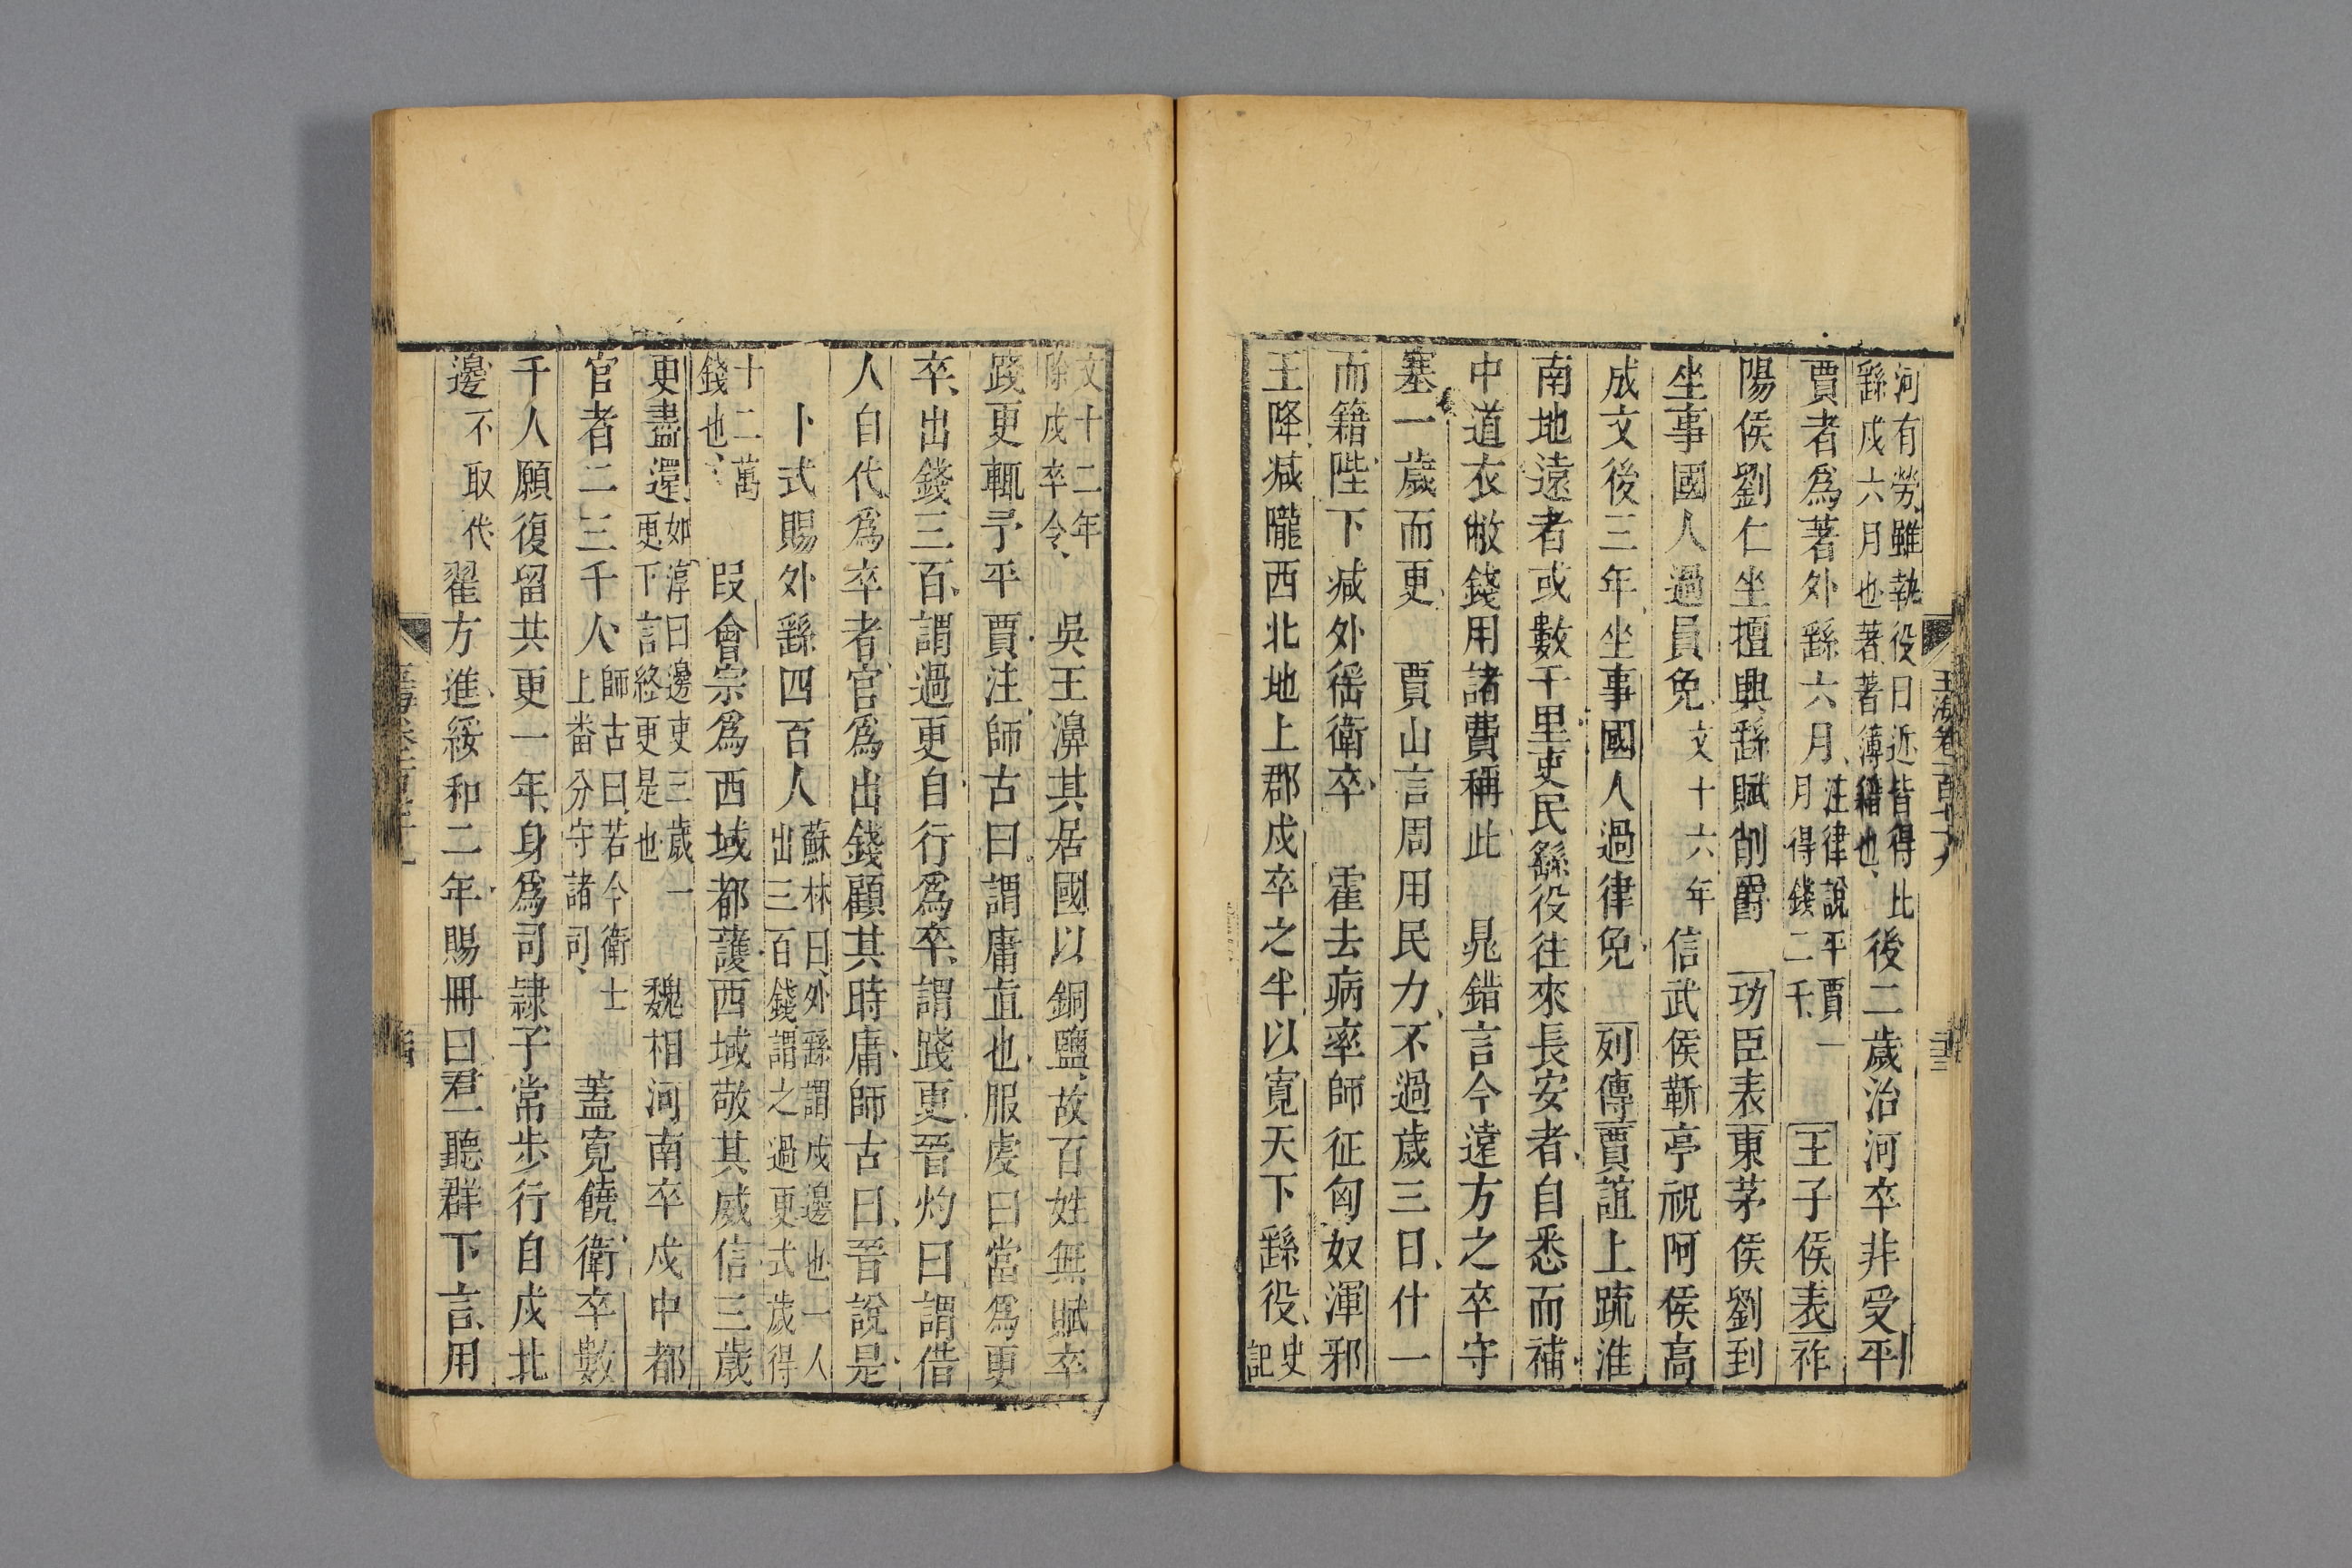 河有勞雖執役日近皆得比
繇戍六月也著著簿籍也
後二歲治河卒非受平
賈者爲著外繇六月
注律說平賈一
月得錢二千
王子侯表祚
陽侯劉仁坐擅興繇賦削爵 功臣表東茅侯劉到
坐事國人過員免文十六年信武侯靳亭祝阿侯高
成文後三年坐事國人過律免 列傳賈誼上䟽淮
南地遠者或數千里吏民繇役往來長安者自悉而補
中道衣敝錢用諸費稱此 晁錯言今遠方之卒守
塞一歲而更 賈山言周用民力不過歲三日什一
而籍陛下減外徭衛卒 霍去病率師征匈奴渾邪
王降減隴西北地上郡戍卒之半以寬天下繇役
史
記
文十二年
除戍卒令
吳王濞其居國以銅鹽故百姓無賦卒
踐更輒予平賈注師古曰謂庸直也服虔曰當爲更
卒出錢三百謂過更自行爲卒謂踐更晉灼曰謂借
人自代爲卒者官爲出錢顧其時庸師古曰晉說是
卜式賜外繇四百人
蘇林曰外繇謂戍邊也一人
出三百錢謂之過更式歲得
十二萬
錢也
段會宗爲西域都護西域敬其威信三歲
更盡還
如淳曰邊吏三歲一
更下言終更是也
魏相河南卒戍中都
官者二三千人
師古曰若今衛士
上番分守諸司
蓋寬饒衛卒數
千人願復留共更一年身爲司隸子常步行自戍北
邊不取代翟方進綏和二年賜冊曰君一聽群下言用